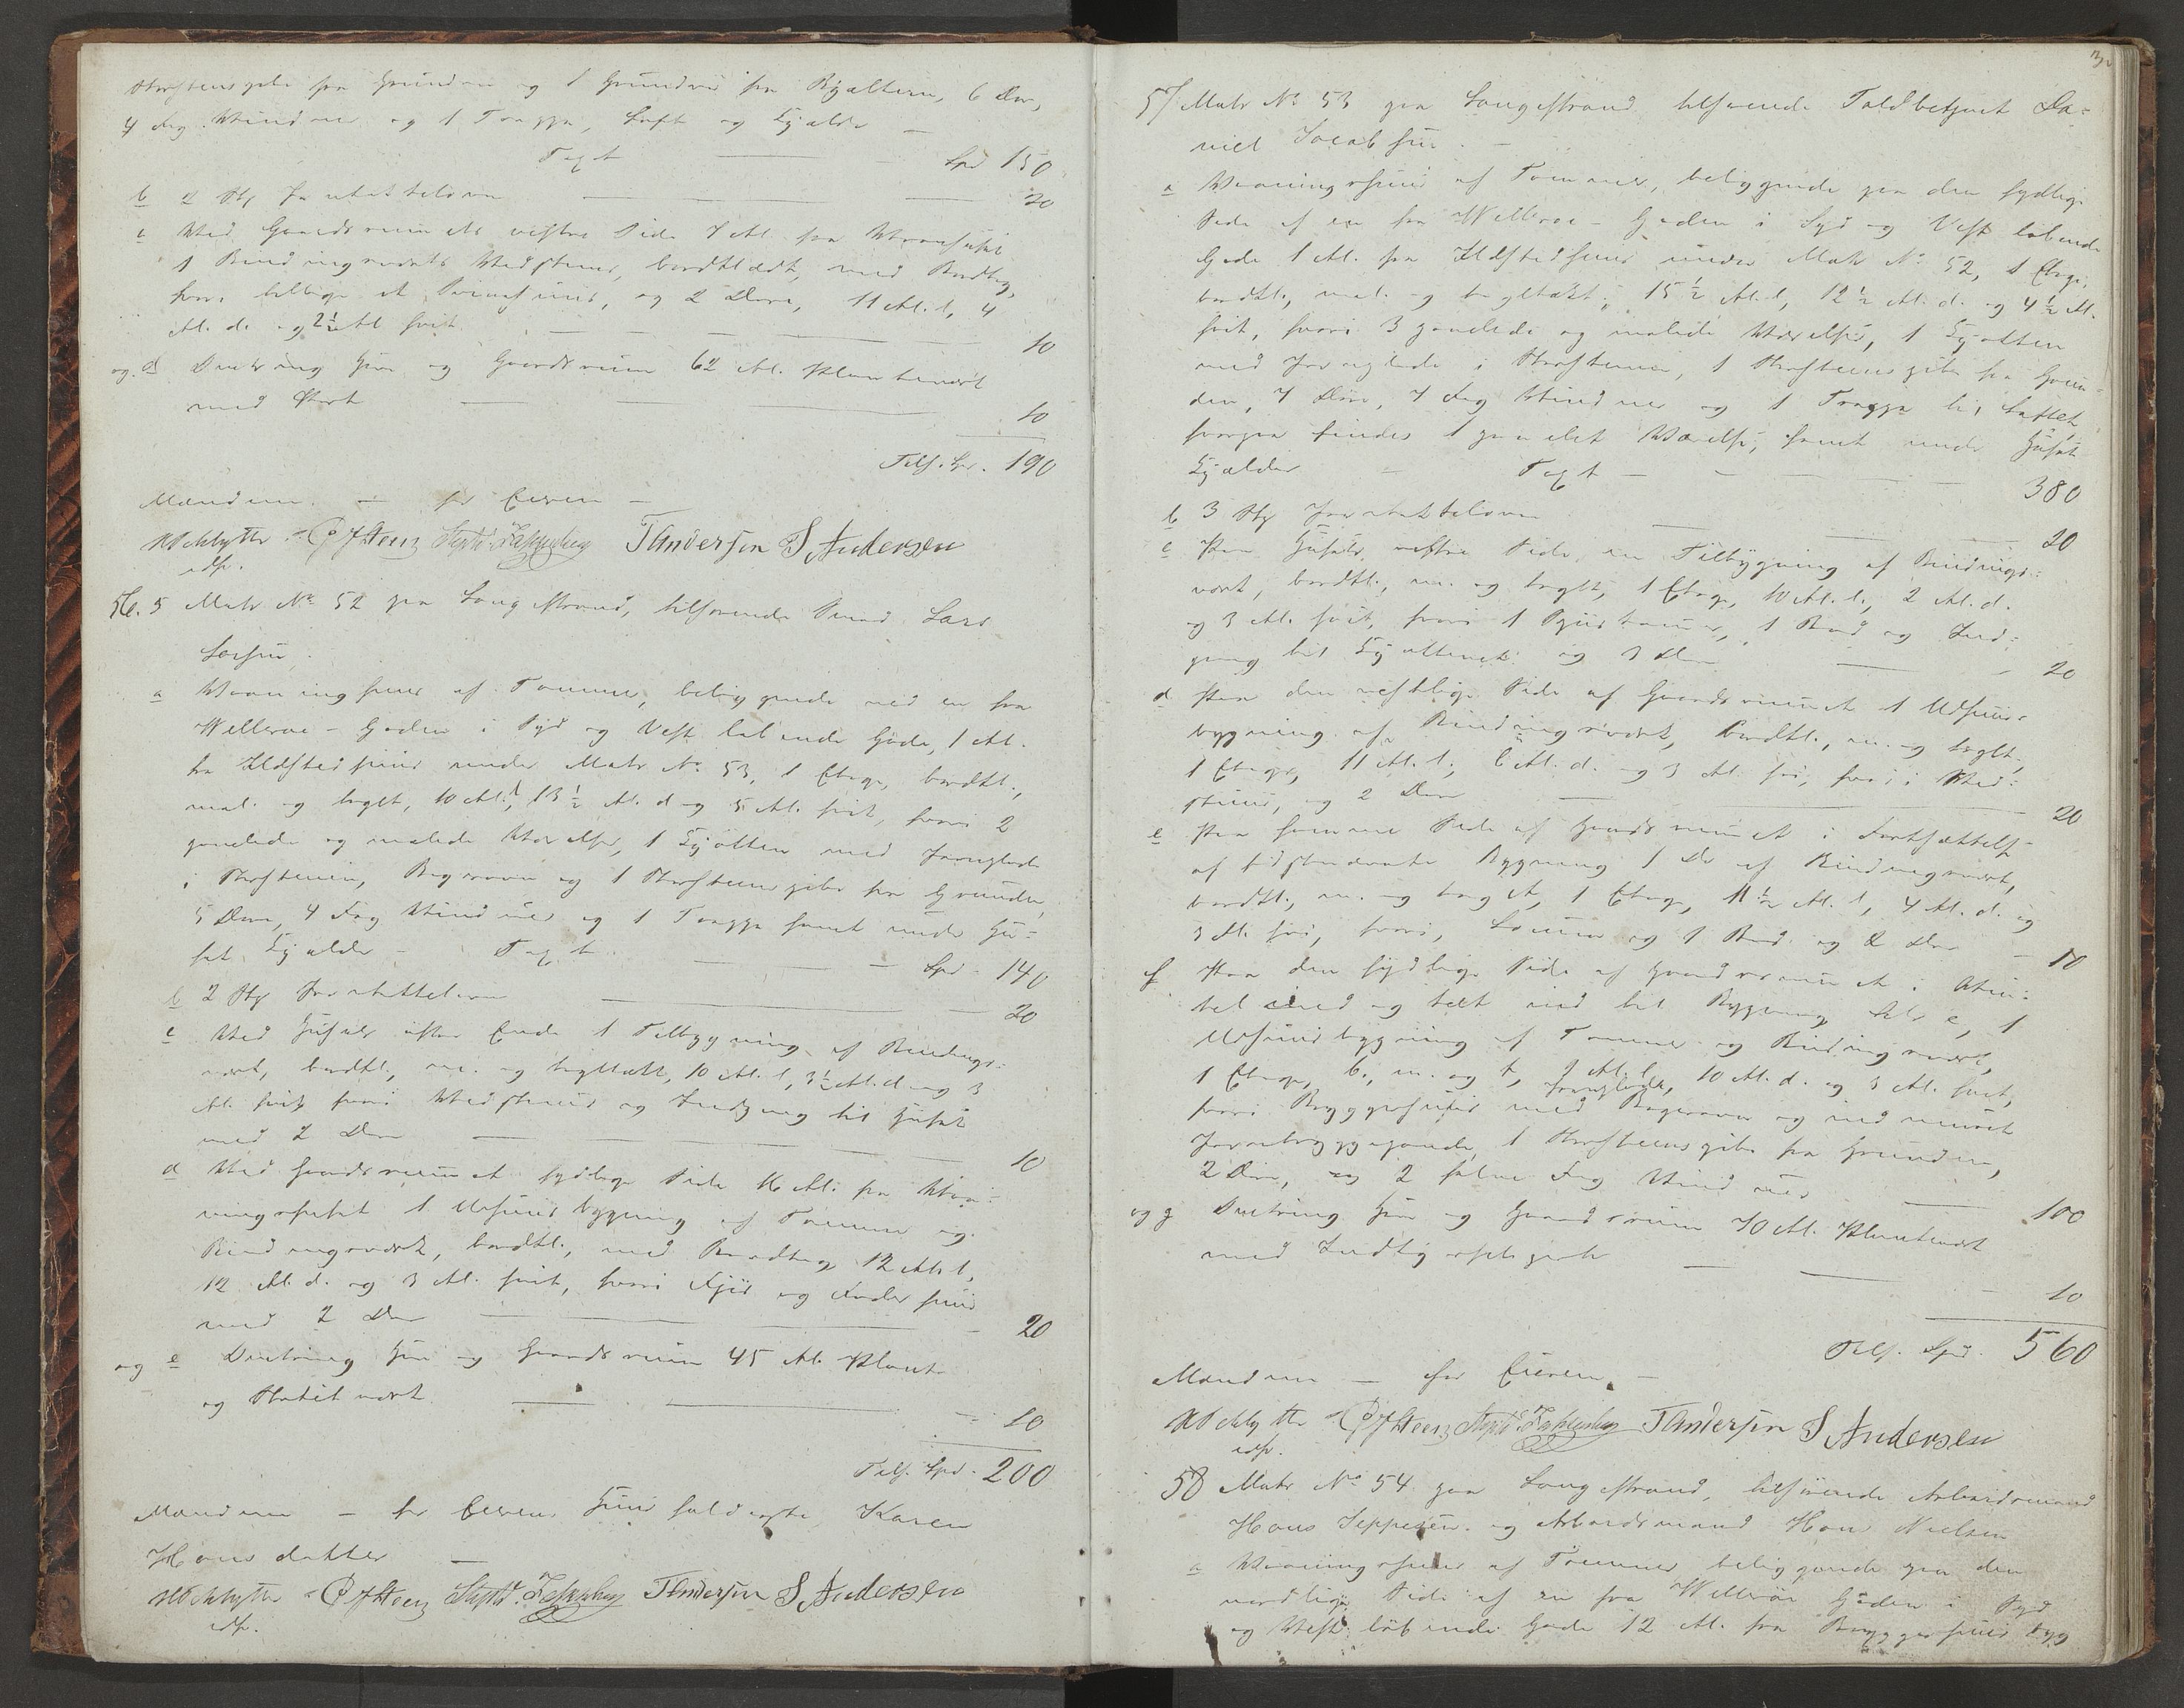 Skorsteenspibe fra Grunden og 1 Grundmur fra Kjælderen, 6 Døre,
4 Fag Vinduer og 1 Trappe, Loft og Kjælder –
Taxt — Spd 150
b 2 St. Jernkakkelovne — 20
c Ved Gaardsrummets vestre Side 7 Al. fra Vaanhuset
1 Bindingsværks Vedskuur, bordklædt, med Bordtag,
hvori tillige et Priveehuus, og 2 Døre, 11 Al. l., 4
Al. d. og 2½ Al høit — 10
og d Omkring Have og Gaardsrum 62 Al. Plankeværk
med Port — 10
Tils. Spd. 190
Mændene – for Eieren –
PJSteen TAndersen S Andersen
56. 5 Matr No 52 paa Langestrand, tilhørende Lars
Larsen.
a Vaaningshuus af Tømmer, beliggende ved en fra
Wellerøe-Gaden i Syd og Vest løbende Gade, 1 Al.
fra Ildstedhuus under Matr No 53, 1 Etage, bordkl.,
mal. og teglt., 10 Al. l., 13½ Al. d og 5 Al. høit, hvori 2
panelede og malede Værelser, 1 Kjøkken med Jernplade
i Skorstenen, Bagerovn og 1 Skorsteenspibe fra Grunden,
5 Døre, 4 Fag Vinduer og 1 Trappe samt under Hu-
set Kjælder – Taxt — Spd. 140
b 2 St. Jernkakkelovne — 20
c Ved Husets østre Ende 1 Tilbygning af Bindings-
værk, bordkl., m. og tegltækt, 10 Al. l., 3½ Al. d. og 3
Al. høit hvori Vedskuur og Indgang til Huset
med 2 Døre — 10
d Ved Gaardsrummets sydlige Side 16 Al. fra Vaa-
ningshuset 1 Udhuusbygning af Tømmer og
Bindingsværk, bordkl., med Bordtag 12 Al. l.,
12 Al. d. og 3 Al. høit, hvori Fjøs og Foderhuus
med 2 Døre — 20
og e Omkring Have og Gaardsrum 45 Al. Planke
og Stakitværk — 10
Tils. Spd. 200
Mændene – for Eieren Huusholderske Karen
Hansdatter –
PJSteen TAndersen S Andersen
57 Matr No 53 paa Langestrand tilhørende Toldbetjent Da-
niel Jacobsen. –
a Vaaningshuus af Tømmer, beliggende paa den sydlige
Side af en fra Wellerøe-Gaden i Syd og Vest løbende
Gade 1 Al. fra Ildstedhuus under Matr No 52, 1 Etage,
bordkl., mal. og tegltækt, 15½ Al. l., 12½ Al. d. og 4½ Al.
høit, hvori 3 panelede og malede Værelser, 1 Kjøkken
med Jernplade i Skorstenen, 1 Skorsteenspibe fra Grun-
den, 7 Døre, 7 Fag Vinduer og 1 Trappe til Loftet,
hvorpaa findes 1 panelet Værelse, samt under Huset
Kjælder – Taxt — 380
b 3 St Jernkakkelovne — 20
c Paa Husets vestre Side en Tilbygning af Bindings-
værk, bordkl., m. og tegltt., 1 Etage, 10 Al. l., 2 Al. d.
og 3 Al. høit, hvori 1 Spiiskammer, 1 Bod og Ind-
gang til Kjøkkenet og 3 Døre — 20
d Paa den vestlige Side af Gaardsrummet 1 Udhuus-
bygning af Bindingsværk, bordkl., m. og tegltt.,
1 Etage, 11 Al. l., 6 Al. d. og 3 Al. høi, hvori Ved-
skuur, og 2 Døre — 20
e Paa samme Side af Gaardsrummet i Fortsættelse
af sidstnævnte Bygning 1 Do af Bindingsværk,
bordkl., m. og tegltt., 1 Etage, 11½ Al. l., 4 Al. d. og
3 Al. høi, hvori, og 1 Bod og 2 Døre – 10
f Paa den sydlige Side af Gaardsrummet i Vin-
kel med og tæt ind til Bygning Litr e, 1
Udhuusbygning af Tømmer og Bindingsværk,
1 Etage, b., m. og t., 9 Al. l., 10 Al. d. og 3 Al. høit,
hvori Bryggerhuus med Jernplade, Bagerovn og indmuret
Jernbryggepande, 1 Skorsteenspibe fra Grunden,
2 Døre, og 2 halve Fag Vinduer — 100
og g Omkring Have og Gaardsrum 70 Al. Plankeværk
med Indkjørselsport — 10
Tils. Spd. 560
Mændene – for Eieren. –
PJSteen TAndersen S Andersen
58 Matr No 54 paa Langestrand, tilhørende Arbeidsmand
Hans Jeppesen og Arbeidsmand Hans Nielsen
a Vaaningshuus af Tømmer beliggende paa den
nordlige Side af en fra Wellerøe Gaden i Syd
og Vest løbende Gade 12 Al. fra Bryggerhuus